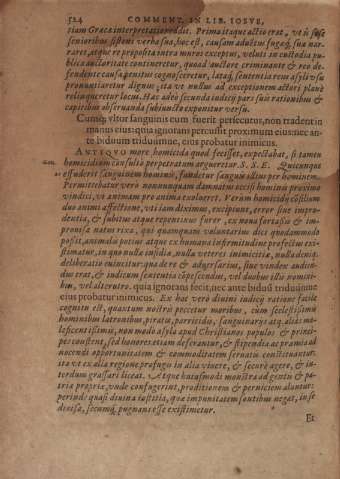 524 COMMENT. IN LIB. IOSVE,
tiam Græca interpretatio reddit. Prima itaque actio erat, vt is suse
senioribus sisteret verba sua, hoc est, causam aduētus fugæq́; sua nar-
raret, atque re proposita intra muros exceptus, veluti in custodia pu-
blica auctoritate contineretur, quoad auctore criminante & reo de-
fendente causa penitus cognosceretur, lataq́; sententia reus asyli vsu
pronuntiaretur dignus; ita vt nullus ad exceptionem actori planè
relinqueretur locus. Hæc adeo secunda iudicij pars suis rationibus &
capitibus obseruanda subiuncto exponitur versu.
Cumq́; vltor sanguinis eum fuerit persecutus, non tradent in
manus eius: quia ignorans percussit proximum eius: nec an-
te biduum triduúmue, eius probatur inimicus.
ANTIQVO more homicida quod fecisset, expectabat, si tamen
homicidium consulto perpetratum argueretur. S. S. E. Quicunque
effuderit sanguinem hominis, fundetur sanguis illius per hominem.
Permittebatur verò nonnunquam damnatus occisi hominis proximo
vindici, vt animam pro anima exolueret. Verùm homicidij cōsilium
duo animi affectione, vti iam diximus, excipiunt, error siue impru-
dentia, & subitus atque repentinus furor, ex mora fortassis & im-
prouisa natus rixa, qui quamquam voluntarius dici quodammodo
possit, animalis potius atque ex humana infirmitudine profectus exi-
stimatur, in quo nulla insidia, nulla veteres inimicitiæ, nulla deniq́;
deliberatio cuincitur: quod de & aduersarius, siue vindex audien-
dus erat, & iudicum sententia cōpescendus, vel duobus istis nomini-
bus, vel alterutro. quia ignorans fecit, nec ante biduū triduúmue
eius probatur inimicus. Ex hac verò diuini iudicij ratione facile
cognitu est, quantum nostri peccetur moribus, cùm scelestissimi
hominibus latronibus, pirata, parricidæ, sanguinarij atq́; alij ma-
leficentissimi, non modò asyla apud Christianos populos & princi-
pes constent, sed honores etiam deferantur, & stipendia ac præmia ad
nocendi opportunitatem & commoditatem seruata constituantur:
ita vt ex alia regione profugis in alia viuere, & securè agere, & in-
terdum grassari liceat. Atque huiusmodi monstra ad gentis & pa-
triæ propriæ, vnde confugerint, proditionem & perniciem aluntur:
perinde quasi diuina iustitia, quæ impunitatem sontibus negat, in se
diuersa, secumq́; pugnans esse existimetur.
Et